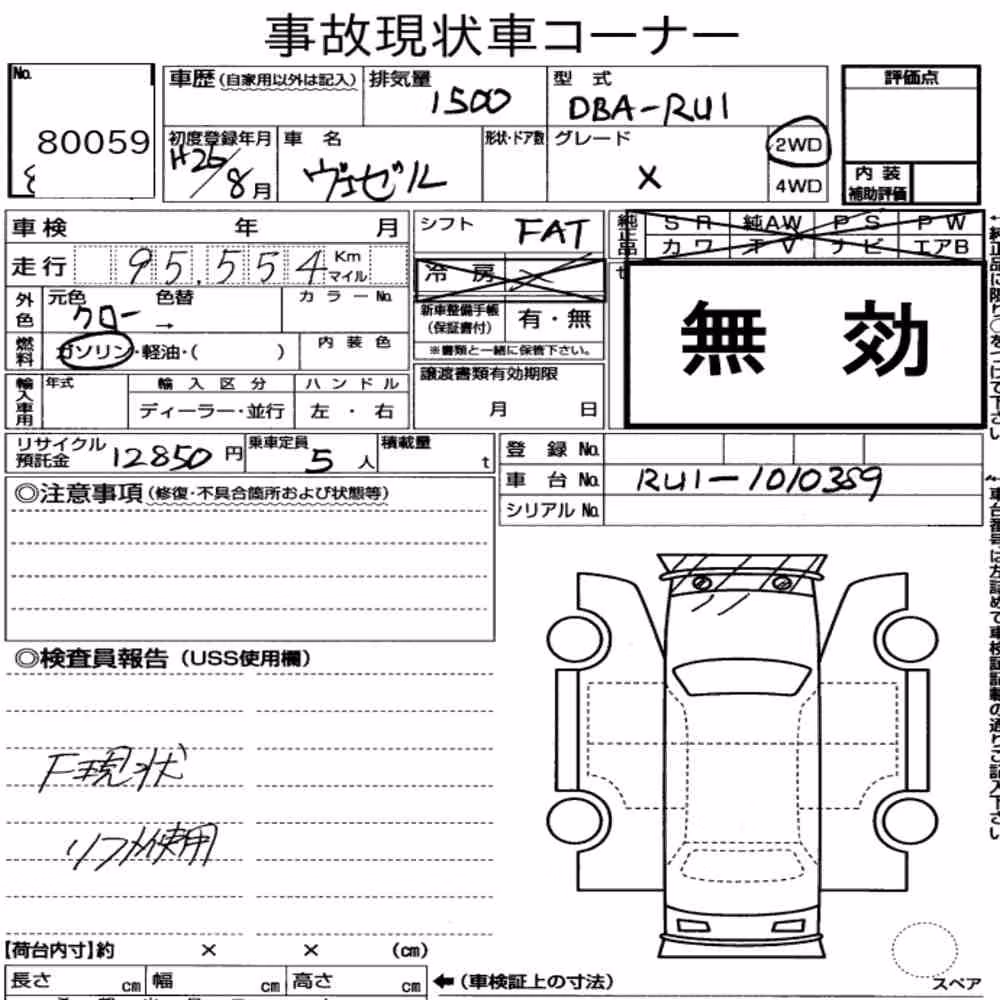 事故現状車コーナー
No. 80059
車歴(自家用以外は記入) 排気量 1500 型式 DBA-RU1 評価点
初度登録年月 H26/8月 車名 ヴェゼル 形状・ドア数 グレード X 2WD 4WD
内装補助評価
車検 年 月 シフト FAT 純正品 SR 純AW PS PW
カワ TV ナビ エアB
走行 95,554 Km マイル 冷房
外色 元色 クロー 色替 → カラーNo. 新車整備手帳(保証書付) 有・無
※書類と一緒に保管下さい。
無効
燃料 ガソリン・軽油・( ) 内装色
輸入車用 年式 輸入区分 ハンドル 譲渡書類有効期限
ディーラー・並行 左・右 月 日
リサイクル預託金 12850円 乗車定員 5人 積載量 t
登録No.
車台No. RU1-1010359
シリアルNo.
◎注意事項(修復・不具合箇所および状態等)
◎検査員報告(USS使用欄)
F現状
リフト使用
【荷台内寸】約 × × (cm)
長さ cm 幅 cm 高さ cm ←(車検証上の寸法)
スペア
←純正品に限り○をつけて下さい
車台番号は左詰めで車検証記載の通りご記入下さい